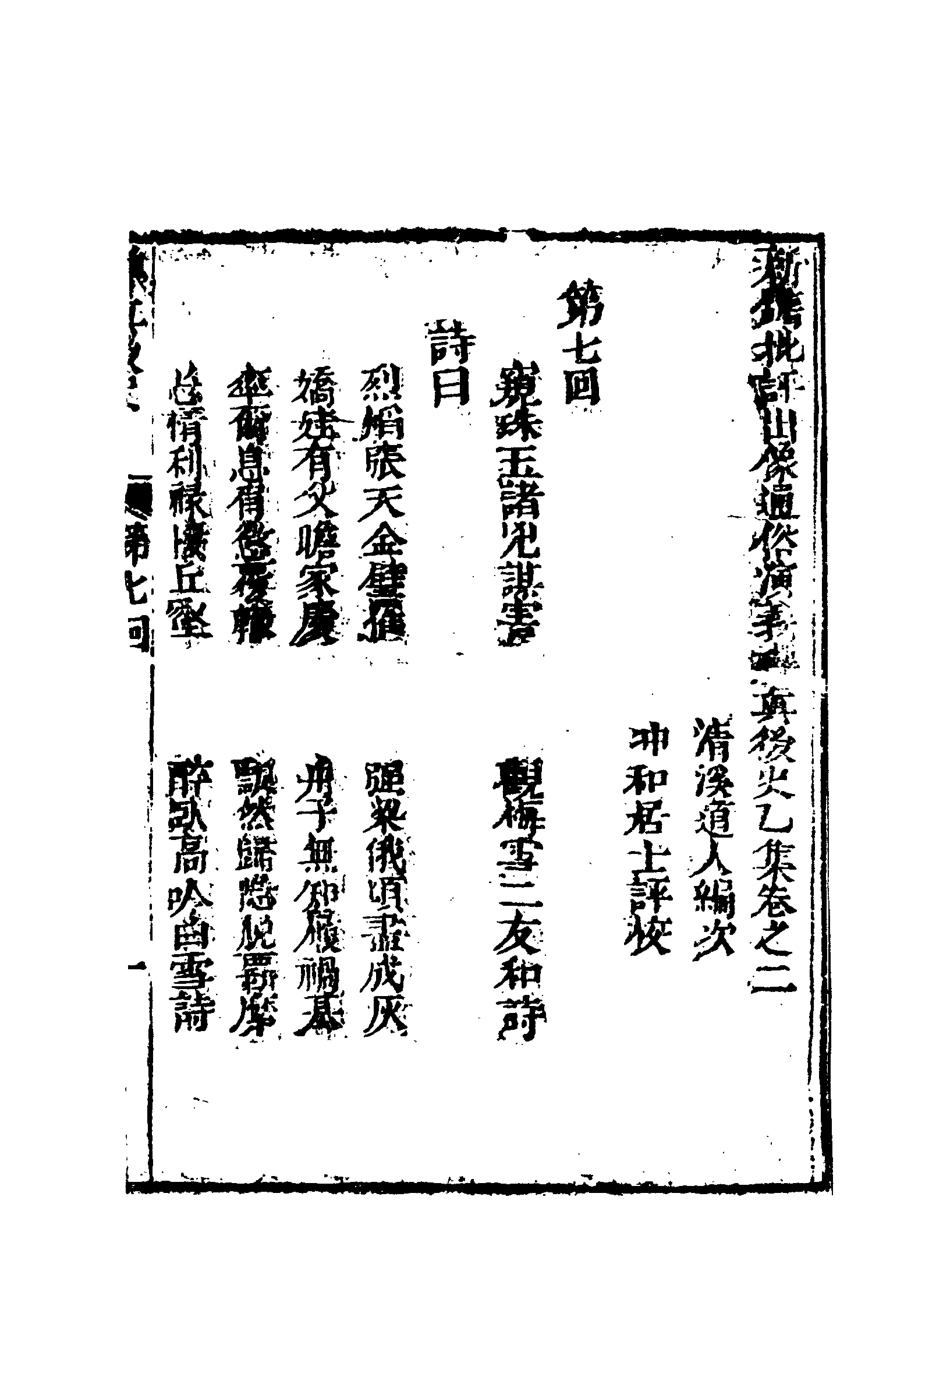 新鐫批評出像通俗演義禪真後史乙集卷之二
清溪道人編次
冲和居士評校
第七回
窺珠玉諸兇謀害 觀梅雪二友和詩
詩曰
烈熖張天金璧摧 强梁俄頃盡成灰
嬌娃有父瞻家慶 丹子無知履禍基
率爾息有愆覆轍 飄然歸隱脫羈縻
忘情利祿懐丘壑 醉臥高吟白雪詩
禪真後史
第七回
一